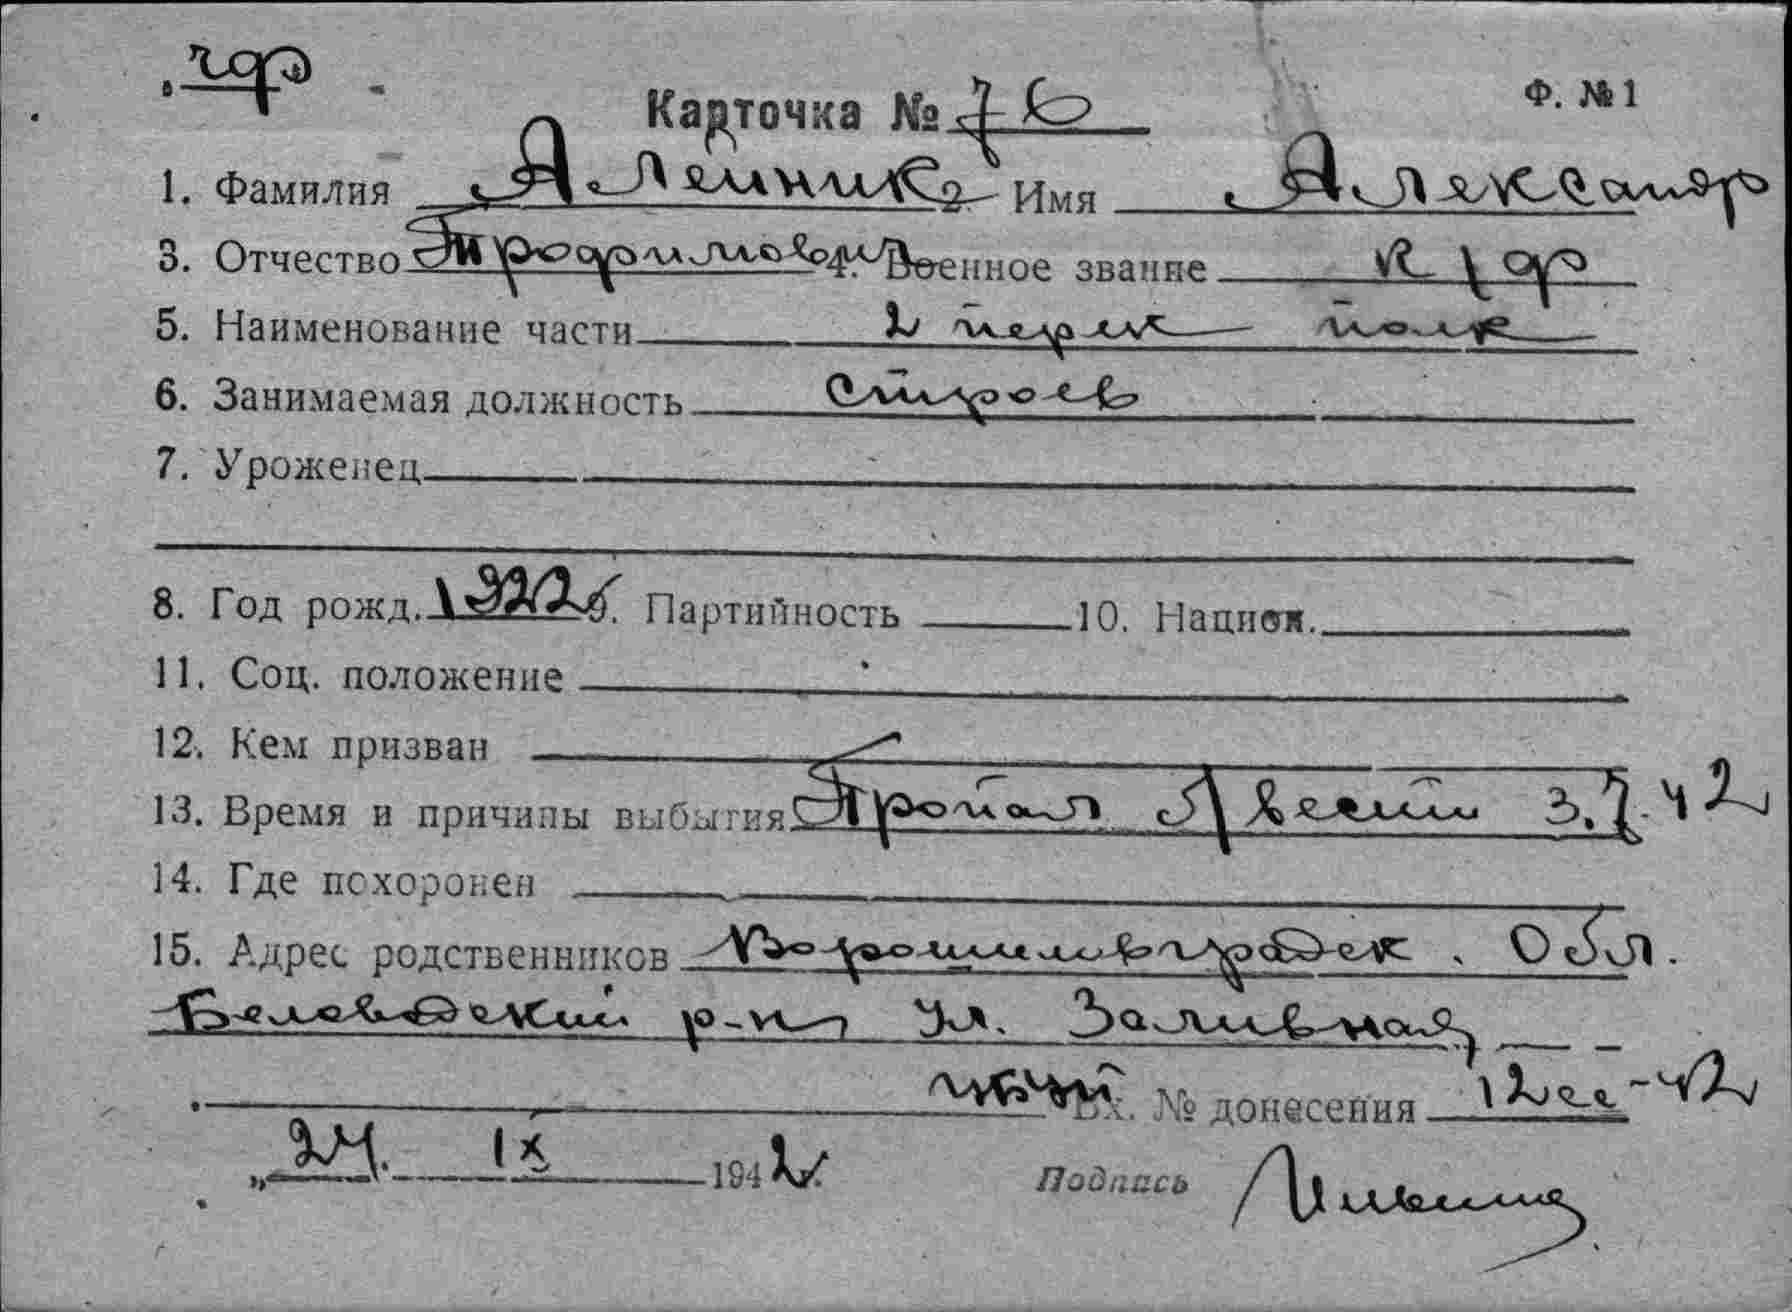 чф
Карточка № 76 Ф. №1
1. Фамилия Алейник 2. Имя Александр
3. Отчество Трофимович 4. Военное звание к/ф
5. Наименование части 2 перек полк
6. Занимаемая должность строев
7. Уроженец
8. Год рожд. 1922 9. Партийность 10. Национ.
11. Соц. положение
12. Кем призван
13. Время и причины выбытия Пропал б/вести 3.7.42
14. Где похоронен
15. Адрес родственников Ворошиловградск. Обл.
Беловодский р-н ул. Заливная
Вх. № донесения 12сс-42
„24. IX 1942
Подпись